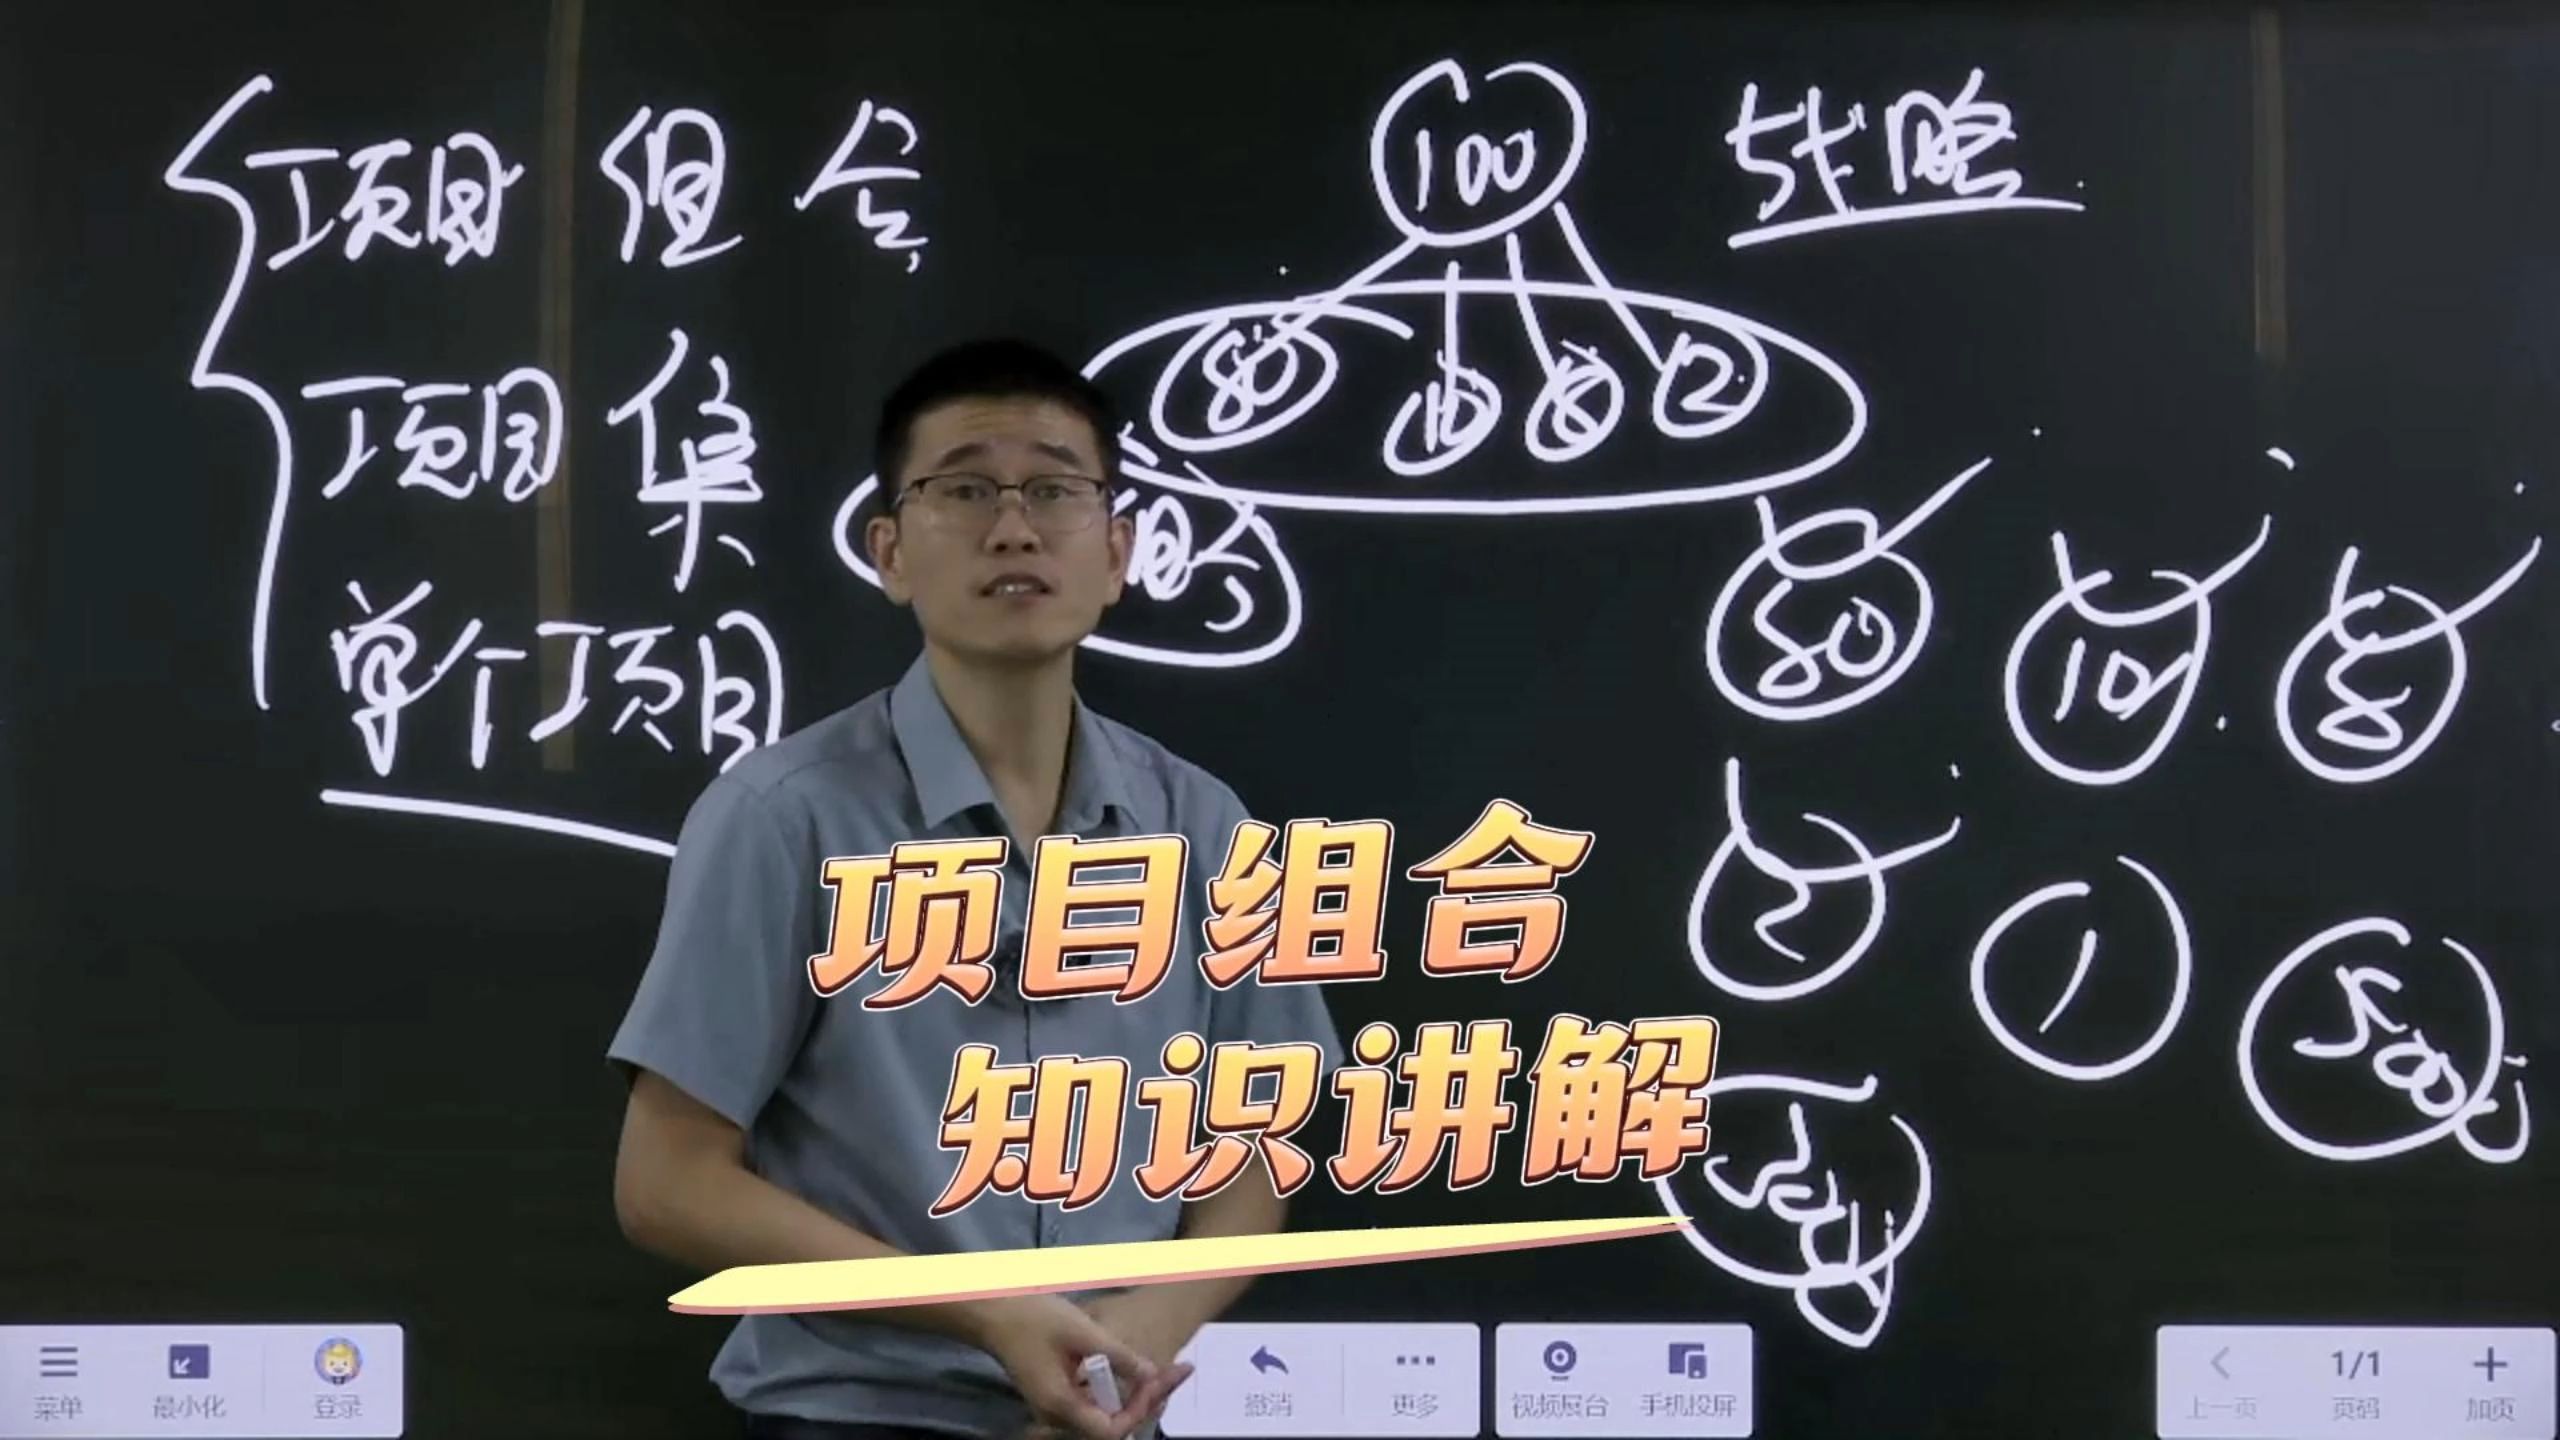 项目组合
100
战略
项目集
80
10
8
2
单个项目
80
10
8
2
1
500
项目组合
知识讲解
菜单
最小化
登录
撤消
更多
视频展台
手机投屏
上一页
1/1
页码
加页